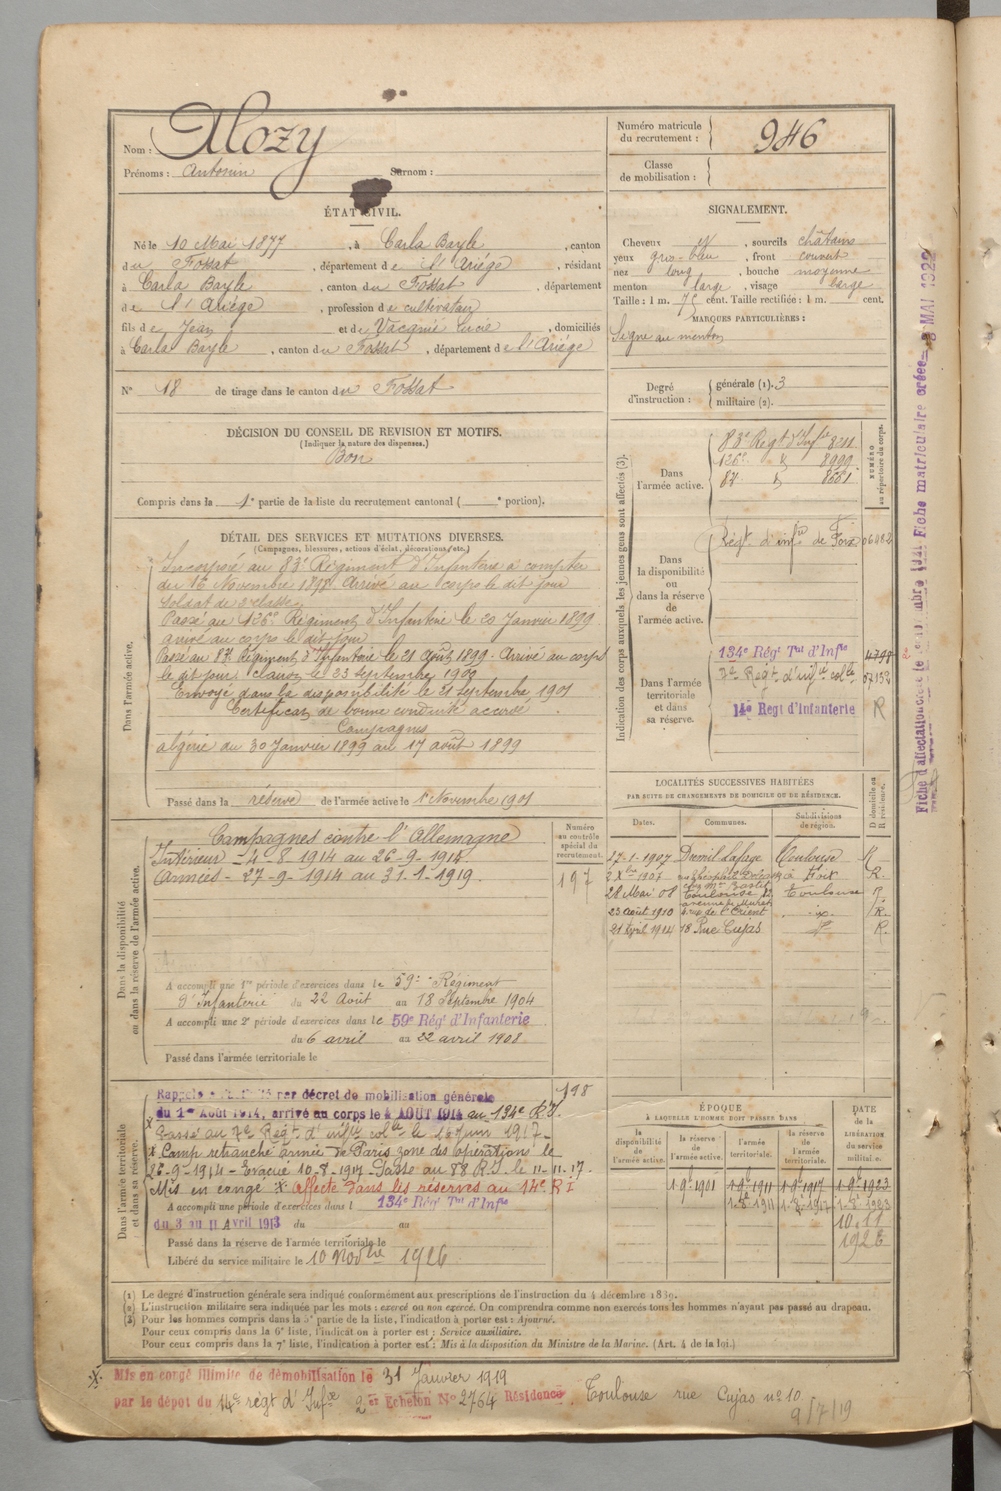 Nom : Alozy
Prénoms : Antonin Surnom :
Numéro matricule du recrutement : 946
Classe de mobilisation :
ÉTAT CIVIL.
Né le 10 Mai 1877, à Carla Bayle, canton
du Fossat, département de l'Ariége, résidant
à Carla Bayle, canton du Fossat, département
de l'Ariége, profession de cultivateur
fils de Jean et de Vacquié Lucie, domiciliés
à Carla Bayle, canton du Fossat, département de l'Ariége
N° 18 de tirage dans le canton du Fossat
SIGNALEMENT.
Cheveux et, sourcils châtains
yeux gris-bleu, front couvert
nez long, bouche moyenne
menton large, visage large
Taille : 1 m. 75 cent. Taille rectifiée : 1 m. cent.
MARQUES PARTICULIÈRES :
Signe au menton
Degré d'instruction : générale (1). 3
militaire (2).
DÉCISION DU CONSEIL DE REVISION ET MOTIFS.
(Indiquer la nature des dispenses.)
Bon
Compris dans la 1e partie de la liste du recrutement cantonal ( e portion).
DÉTAIL DES SERVICES ET MUTATIONS DIVERSES.
(Campagnes, blessures, actions d'éclat, décorations, etc.)
Dans l'armée active.
Incorporé au 83e Régiment d'Infanterie à compter
du 16 Novembre 1898. Arrivé au corps le dit jour
soldat de 2e classe.
Passé au 126e Régiment d'Infanterie le 20 Janvier 1899
arrivé au corps le dit jour
Passé au 87e Régiment d'Infanterie le 21 Août 1899. Arrivé au corps
le dit jour. clairon le 23 septembre 1900
Envoyé dans la disponibilité le 21 septembre 1901
Certificat de bonne conduite accordé
Campagnes
algérie du 30 Janvier 1899 au 17 août 1899
Passé dans la réserve de l'armée active le 1 Novembre 1901
Indication des corps auxquels les jeunes gens sont affectés (3).
NUMÉRO au répertoire du corps.
Dans l'armée active.
83e Régt d'Infie 8211
126e d 8999
87 d 8661
Dans la disponibilité ou dans la réserve de l'armée active.
Régt d'infie de Foix 06482
Dans l'armée territoriale et dans sa réserve.
134e Régt Tal d'Infie 4798
7e Régt d'infie colle 07153
14e Regt d'Infanterie R
LOCALITÉS SUCCESSIVES HABITÉES
PAR SUITE DE CHANGEMENTS DE DOMICILE OU DE RÉSIDENCE.
Dates. Communes. Subdivisions de région. D domicile ou R résidence.
27-1-1907 Dremil Lafage Toulouse R
3 Xbre 1907 Foix R.
28 Mai 08 Toulouse Toulouse R.
avenue de Muret
23 août 1910 rue de l'Orient R.
21 Avril 1914 18 Rue Cujas R.
Dans la disponibilité ou dans la réserve de l'armée active.
Numéro au contrôle spécial du recrutement.
197
Campagnes contre l'Allemagne
Intérieur - 4-8-1914 au 26-9-1914.
Armées - 27-9-1914 au 31-1-1919.
A accompli une 1re période d'exercices dans le 59e Régiment
d'Infanterie du 22 Août au 18 Septembre 1904
A accompli une 2e période d'exercices dans le 59e Régt d'Infanterie
du 6 avril au 22 avril 1908
Passé dans l'armée territoriale le
Dans l'armée territoriale et dans sa réserve.
198
Rappelé à l'activité par décret de mobilisation générale
du 1er Août 1914, arrivé au corps le 4 AOUT 1914 au 134e R.T.
Passé au 7e Régt d'infie colle le 14 Juin 1917
x Camp retranché armée de Paris zone des opérations le
26-9-1914 - Evacué 10-8-1917 Passé au 88 R.I. le 11-11-17.
Mis en congé x Affecté dans les réserves au 14e R I
A accompli une période d'exercices dans l 134e Régt Tal d'Infie
du 3 au 11 Avril 1913 du au
Passé dans la réserve de l'armée territoriale le
Libéré du service militaire le 10 Novbre 1926
ÉPOQUE
À LAQUELLE L'HOMME DOIT PASSER DANS
DATE DE LA LIBÉRATION du service militaire.
la disponibilité de l'armée active. la réserve de l'armée active. l'armée territoriale. la réserve de l'armée territoriale.
1-9e 1901 1-9e 1911 1-9e 1917 1-9e 1923
1-8e 1911 1-8e 1917 1-8e 1923
10.11
1926
(1) Le degré d'instruction générale sera indiqué conformément aux prescriptions de l'instruction du 4 décembre 1889.
(2) L'instruction militaire sera indiquée par les mots : exercé ou non exercé. On comprendra comme non exercés tous les hommes n'ayant pas passé au drapeau.
(3) Pour les hommes compris dans la 5e partie de la liste, l'indication à porter est : Ajourné.
Pour ceux compris dans la 6e liste, l'indication à porter est : Service auxiliaire.
Pour ceux compris dans la 7e liste, l'indication à porter est : Mis à la disposition du Ministre de la Marine. (Art. 4 de la loi.)
x Mis en congé illimité de démobilisation le 31 Janvier 1919
par le dépot du 14e régt d'Infie 2e Echelon N° 2764 Résidence Toulouse rue Cujas n° 10
9/7/19
Fiche matriculaire créée 8 MAI 1922